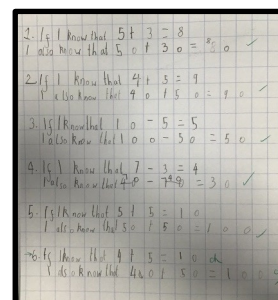 1. If I know that 5 + 3 = 8
I also know that 50 + 30 = 80
2. If I know that 4 + 5 = 9
I also know that 40 + 50 = 90
3. If I know that 10 - 5 = 5
I also know that 100 - 50 = 50
4. If I know that 7 - 3 = 4
I also know that = 30
5. If I know that 5 + 5 = 10
I also know that 50 + 50 = 100
6. If I know that 9 + 5 = 10
I also know that 0 + 50 = 100